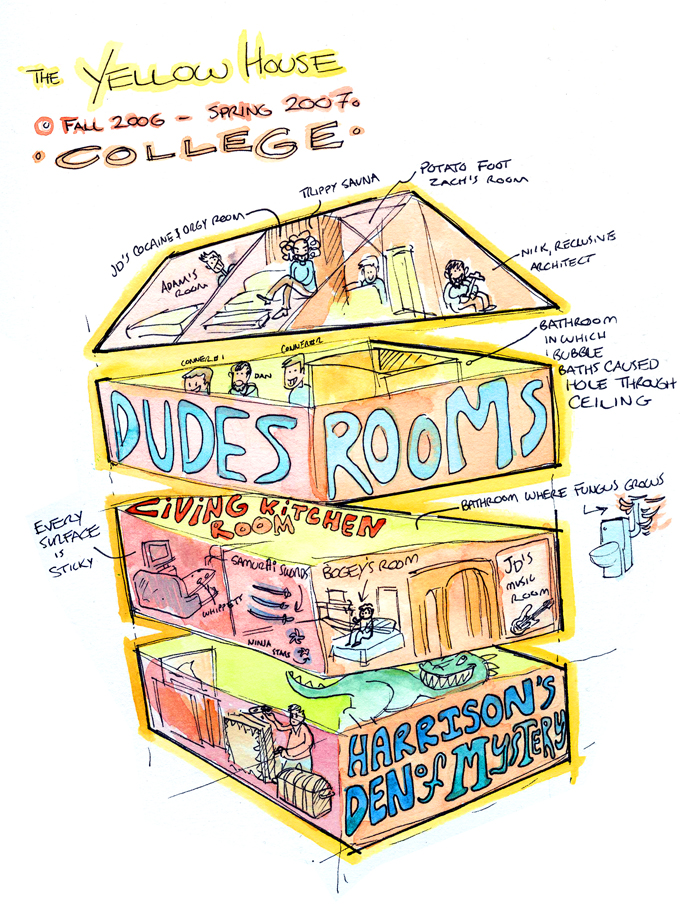 THE YELLOW HOUSE
FALL 2006 - SPRING 2007
COLLEGE
TRIPPY SAUNA
POTATO FOOT
ZACH'S ROOM
JD'S COCAINE & ORGY ROOM
ADAM'S
ROOM
NICK, RECLUSIVE
ARCHITECT
CONNER #1
DAN
CONNER #2
BATHROOM
IN WHICH
BUBBLE
BATHS CAUSED
HOLE THROUGH
CEILING
DUDES ROOMS
LIVING KITCHEN
ROOM
BATHROOM WHERE FUNGUS GROWS
EVERY
SURFACE
IS
STICKY
SAMURAI SWORDS
WHIPPETS
NINJA
STARS
BOGEY'S ROOM
JD'S
MUSIC
ROOM
HARRISON'S
DEN OF MYSTERY